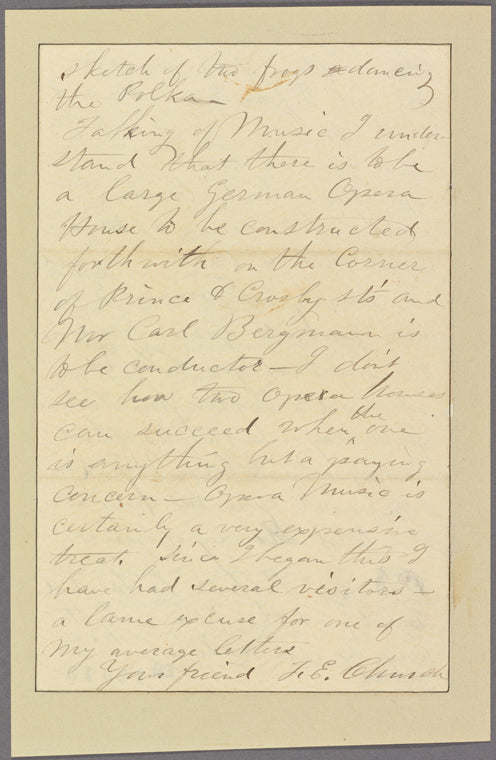 sketch of two frogs dancing
the Polka—
Talking of Music I under-
stand that there is to be
a large German Opera
House to be constructed
forthwith on the Corner
of Prince & Crosby Sts and
Mr Carl Bergmann is
to be conductor— I don't
see how two Opera houses
can succeed when the one
is anything but a paying
concern— Opera Music is
certainly a very expensive
treat. Since I began this I
have had several visitors—
a lame excuse for one of
my average letters
Your friend F. E. Church